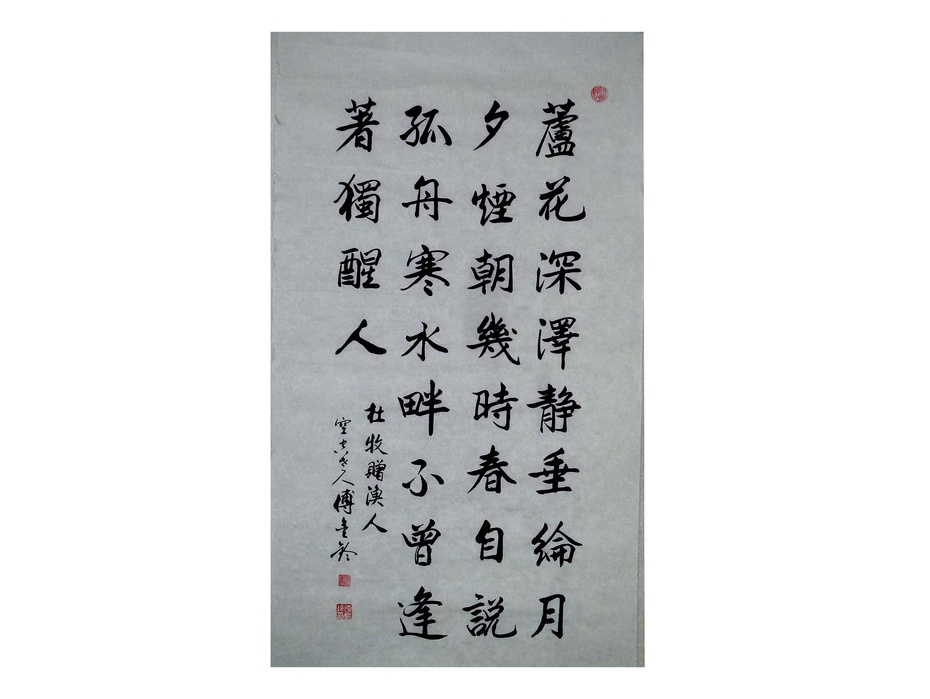 蘆花深澤静垂綸月
夕煙朝幾時春自説
孤舟寒水畔不曾逢
著獨醒人
杜牧贈漁人
人傅